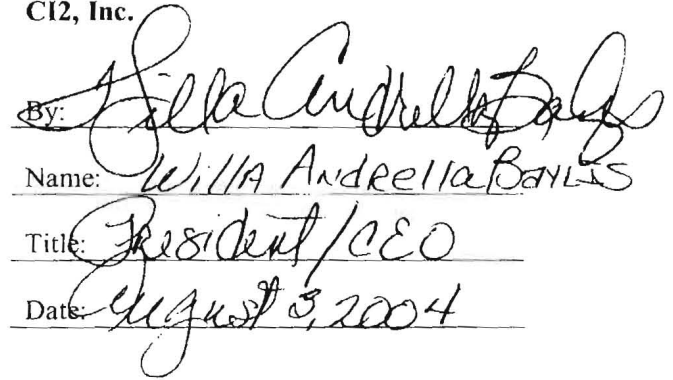 CI2, Inc.
By: Willa Andrella Baylis
Name: Willa Andrella Baylis
Title: President/CEO
Date: August 3, 2004